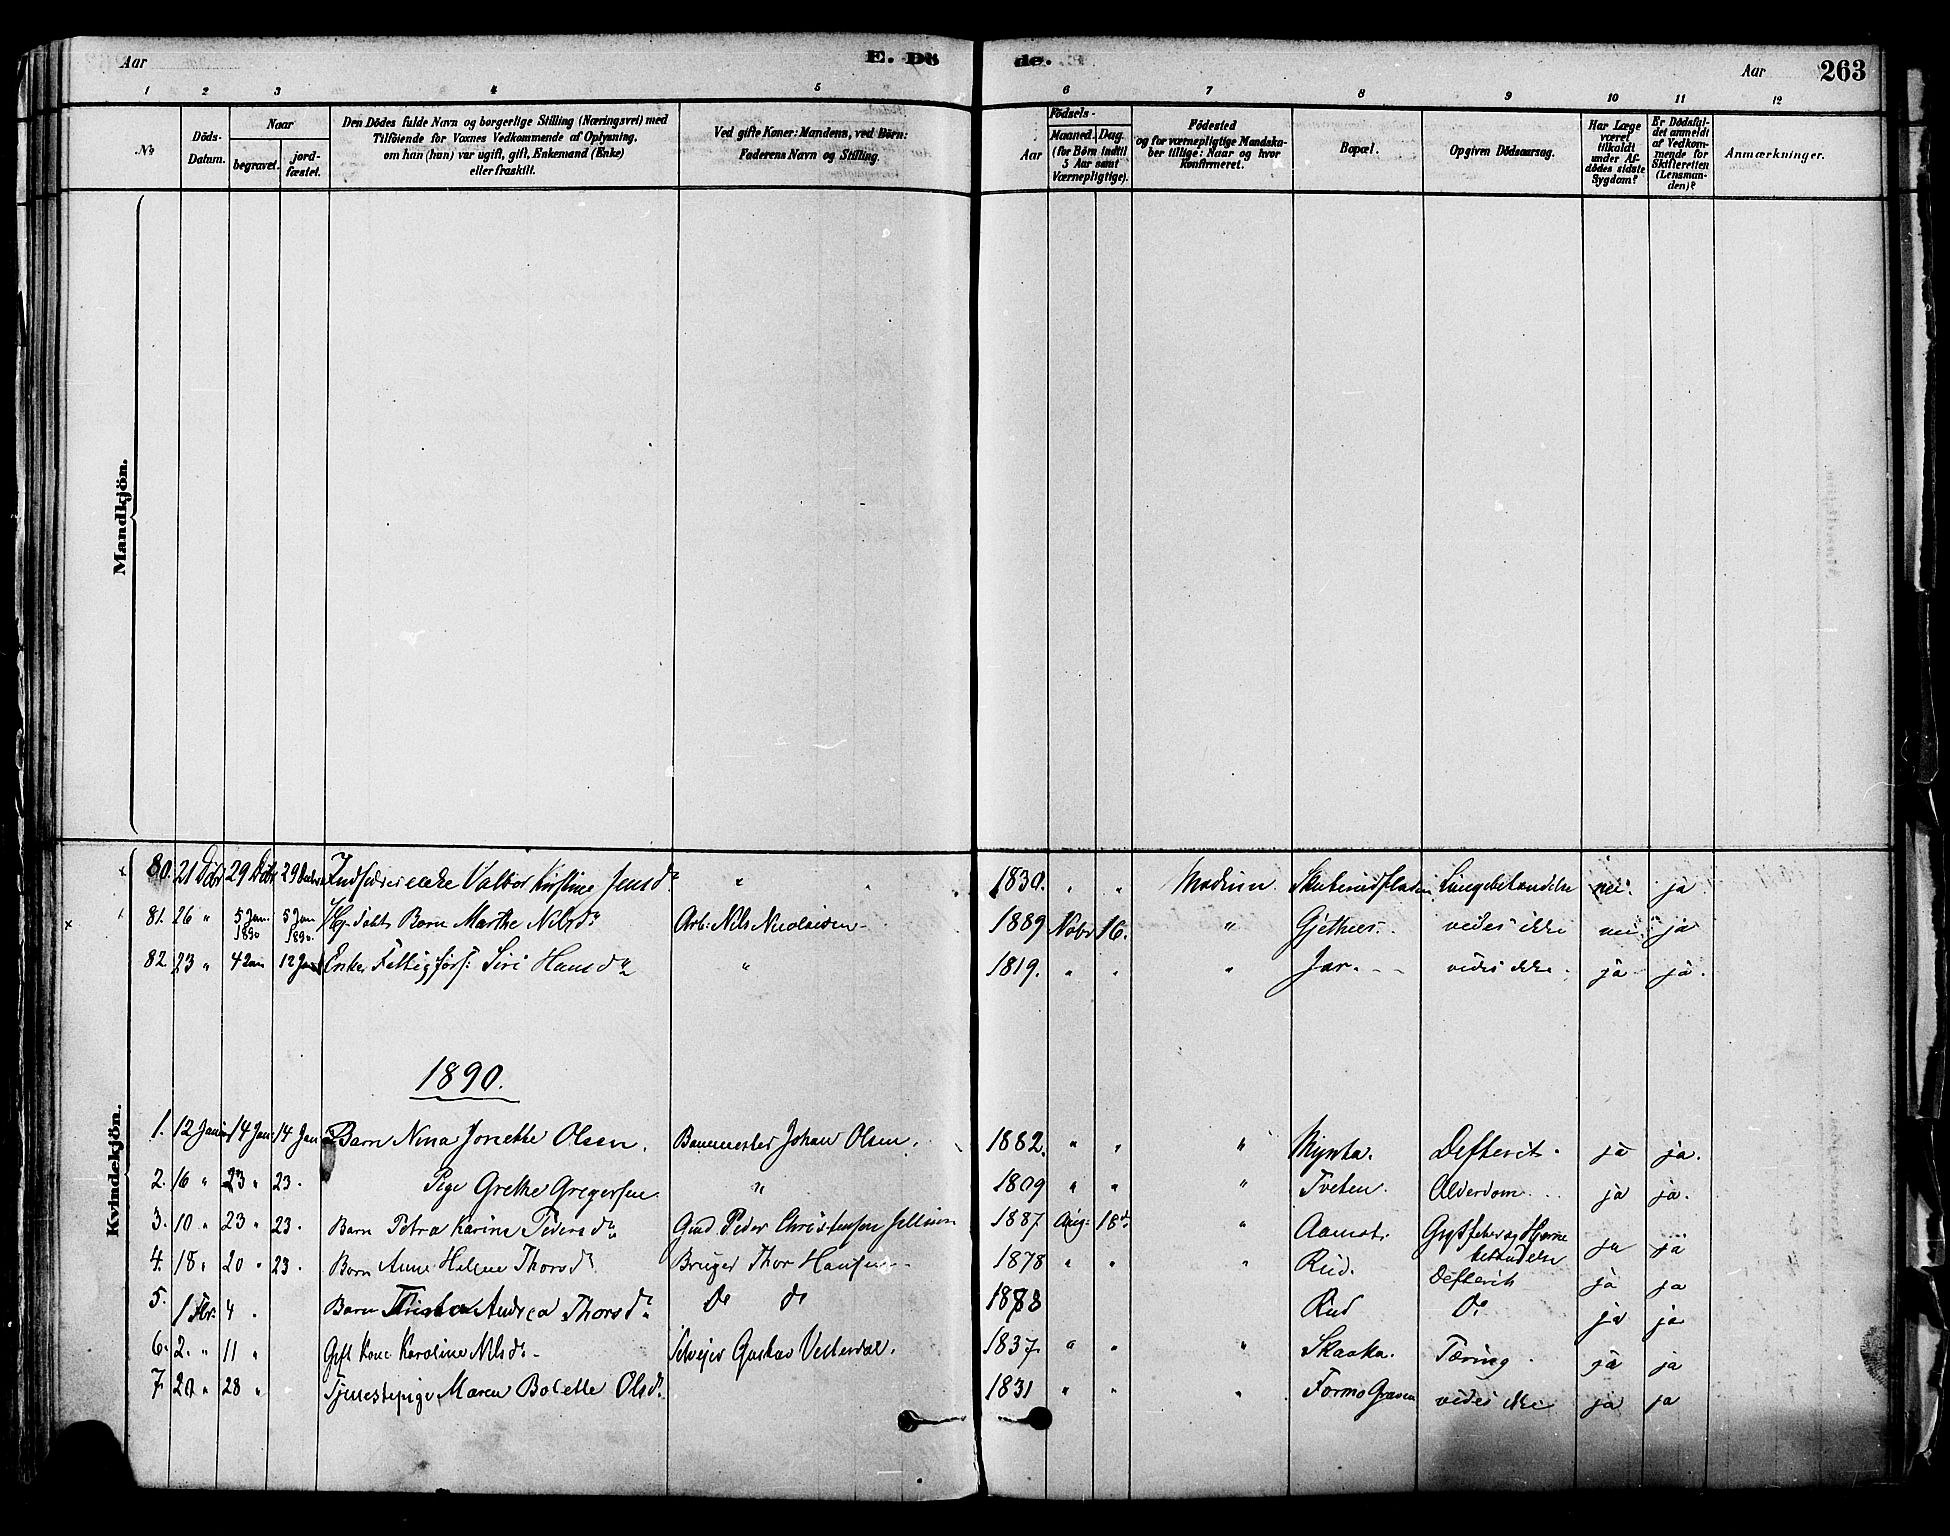 Aar E. Dö de. Aar 263
1 2 3 4 5 6 7 8 9 10 11 12
No
Döds-Datum.
Naar
begravet.
jord-fæstet.
Den Dödes fulde Navn og borgerlige Stilling (Næringsvei) med
Tilföiende for Voxnes Vedkommende af Oplysning,
om han (hun) var ugift, gift, Enkemand (Enke)
eller fraskilt.
Ved gifte Koner: Mandens, ved Börn:
Faderens Navn og Stilling.
Födsels-
Aar
Maaned. Dag.
(for Börn indtil
5 Aar samt
Værnepligtige).
Födested
og for værnepligtige Mandska-
ber tillige: Naar og hvor
konfirmeret.
Bopæl.
Opgiven Dödsaarsag.
Har Læge
været
tilkaldt
under Af-
dödes sidste
Sygdom?
Er Dödsfal-
det anmeldt
af Vedkom-
mende for
Skifteretten
(Lensman-
den)?
Anmærkninger.
Mandkjön.
Kvindekjön.
80. 21 Dbr 29 Dbr 29 Inds enke Valbor Kirstine Jensdr " 1830. " " Modum. Lungebetændelse nei. ja
81. 26 " 5 Jan. 1890 5 Jan 1890. Barn Marthe Nilsdr Arb: Nils Nicolaisen 1889 Nobr 16. " Gjethus. vides ikke nei. ja
82 23 " 4 Jan 12 Jan Enke Siri Hansdr " 1819. " " " Jar. vides ikke. ja ja.
1890.
1. 12 Janu 14 Jan 14 Jan Barn Nina Jonette Olsen. Banemester Johan Olsen. 1882. " " " Mynta. Defterit. ja ja.
2. 16 " 23 " 23. Pige Grethe Gregersen " 1809 " " " Tveten. Alderdom. ja ja.
3. 10 " 23 " 23. Barn Petra Karine Pedersdr Gmd Peder Christensen 1887 Aug: 18de " Aamot. Hjerne
betændelse ja ja
4. 18 " 20 " 23. Barn Anne Helene Thorsdr Bruger Thor Hansen 1878 " " " Rud. Defterit ja ja
5. 1 Fbr. 4 " Barn Andrea Thorsdr Do do 1883 Rud Do ja ja
6. 2. " 11 " Gift Kone Karoline Nilsdr Selveier Gustav Vesterdal. 1837. " " " Skaaka. Tæring. ja ja
7. 20 " 28 " Tjenestepige Maren Bolette Olsdr. 1831 " " " Formo Graven vides ikke ja ja